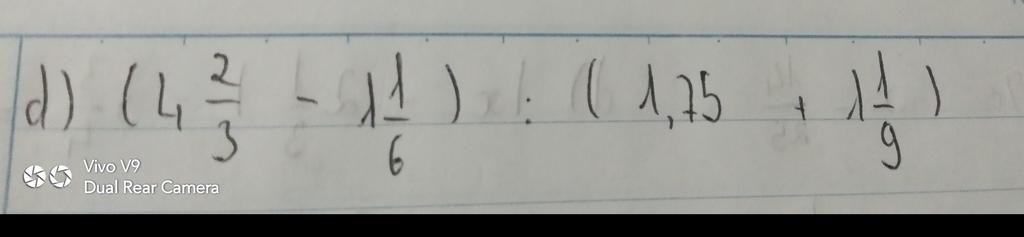 d) (4 2/3 - 1 1/6) : (1,75 + 1 1/9)
Vivo V9
Dual Rear Camera